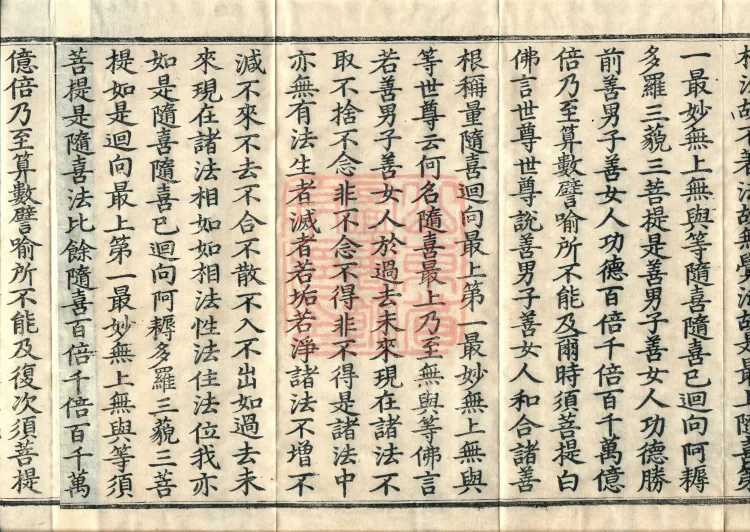 法故不著法故無覺法故是最上隨喜第
一最妙無上無與等隨喜隨喜已迴向阿耨
多羅三藐三菩提是善男子善女人功德勝
前善男子善女人功德百倍千倍百千萬億
倍乃至算數譬喻所不能及爾時須菩提白
佛言世尊世尊說善男子善女人和合諸善
根稱量隨喜迴向最上第一最妙無上無與
等世尊云何名隨喜最上乃至無與等佛言
若善男子善女人於過去未來現在諸法不
取不捨不念非不念不得非不得是諸法中
亦無有法生者滅者若垢若淨諸法不增不
減不來不去不合不散不入不出如過去未
來現在諸法相如如相法性法住法位我亦
如是隨喜隨喜已迴向阿耨多羅三藐三菩
提如是迴向最上第一最妙無上無與等須
菩提是隨喜法比餘隨喜百倍千倍百千萬
億倍乃至算數譬喻所不能及復次須菩提